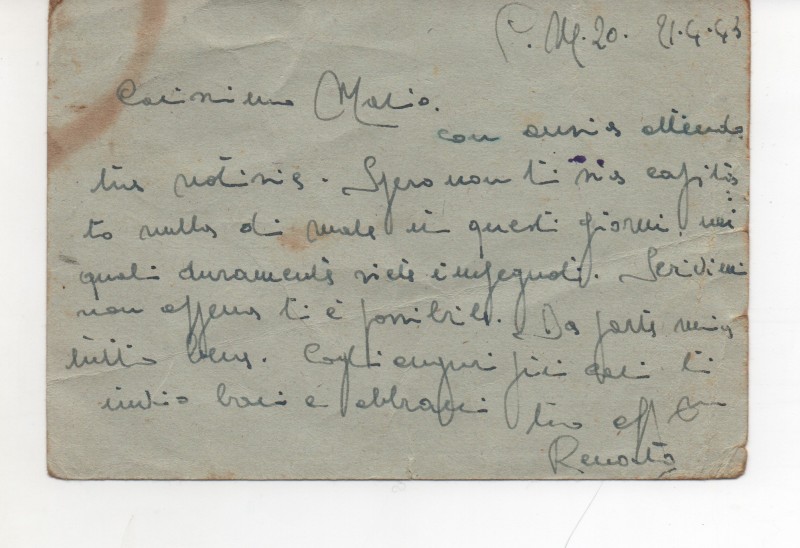 P. M. 20. 21.4.43
Carissimo Mario.
con ansia attendo
tue notizie. Spero non ti sia capita
to nulla di male in questi giorni, nei
quali duramente siete impegnati. Scrivimi
non appena ti è possibile. Da parte mia
tutto bene. Cogli auguri più cari ti
invio baci e abbracci tuo aff mo
Renato